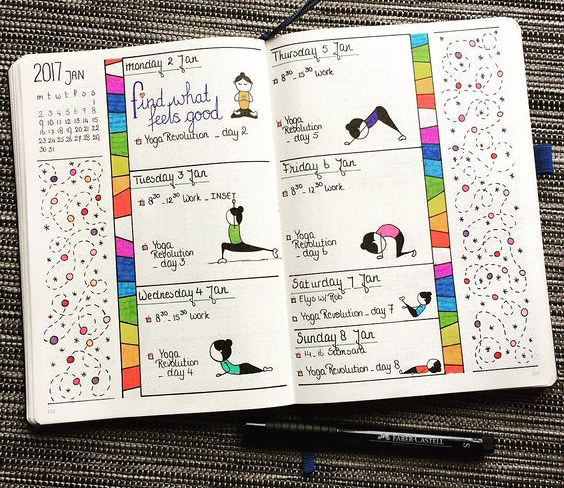 2017 JAN
m t w t f s s
1
2 3 4 5 6 7 8
9 10 11 12 13 14 15
16 17 18 19 20 21 22
23 24 25 26 27 28 29
30 31
monday 2 Jan
find what
feels good
Yoga Revolution _ day 2
Tuesday 3 Jan
8³⁰ - 12³⁰ Work _ INSET
Yoga
Revolution
_ day 3
Wednesday 4 Jan
8³⁰ - 15³⁰ Work
Yoga
Revolution
_ day 4
Thursday 5 Jan
8³⁰ - 15³⁰ Work
Yoga
Revolution
_ day 5
Friday 6 Jan
8³⁰ - 12³⁰ Work
Yoga
Revolution
_ day 6
Saturday 7 Jan
Elys w/ Rob
Yoga Revolution _ day 7
Sunday 8 Jan
14 - 16 Samsara
Yoga Revolution _ day 8
FABER-CASTELL
S